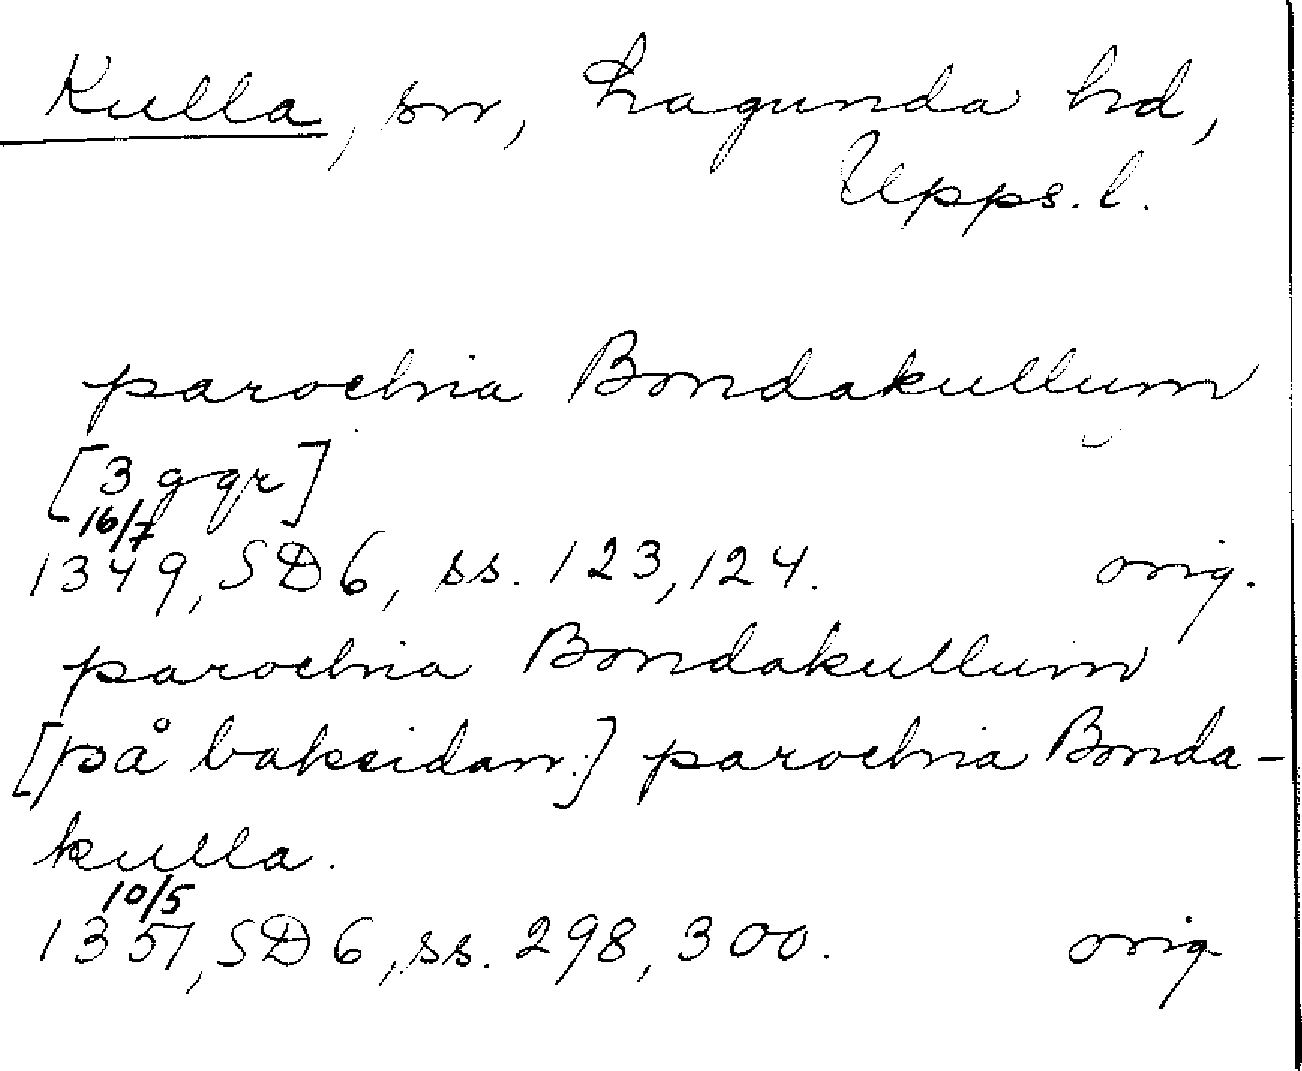 Kulla, sn, Lagunda hd,
Upps. l.
parochia Bondakullum
[3 ggr]
16/7
1349, SD 6, ss. 123, 124. orig.
parochia Bondakullum
[på baksidan:] parochia Bonda-
kulla.
10/5
1351, SD 6, ss. 298, 300. orig